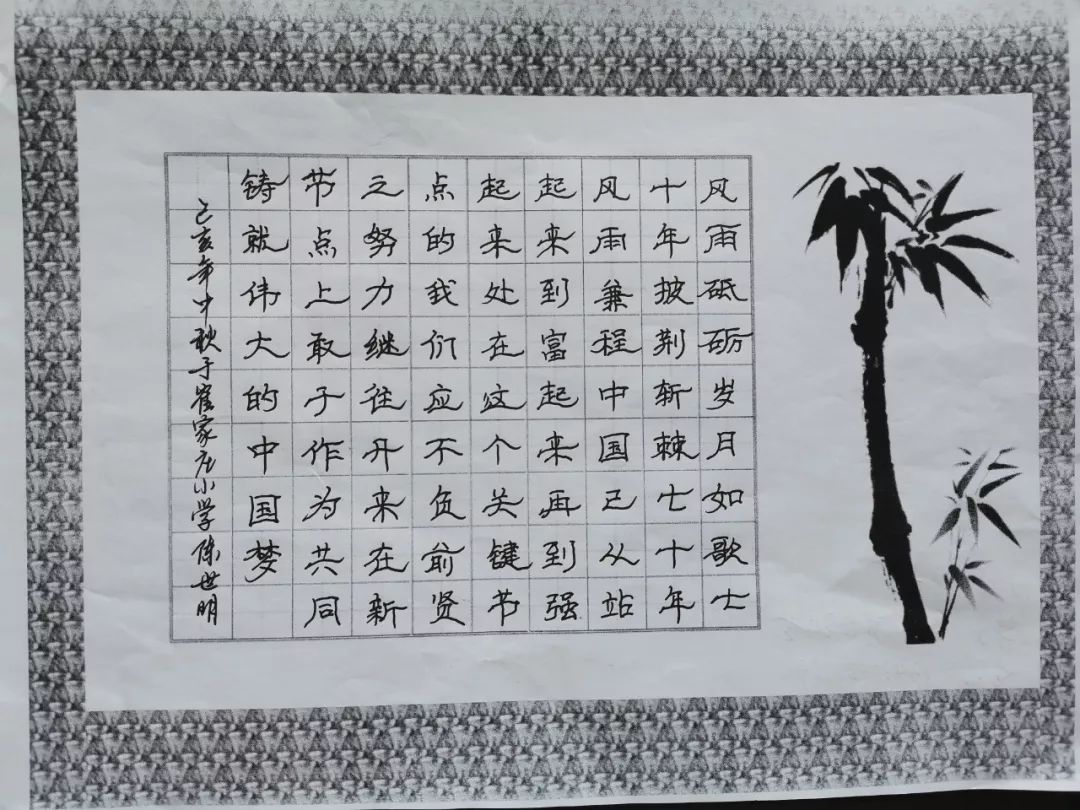 风雨砥砺岁月如歌七
十年披荆斩棘七十年
风雨兼程中国已从站
起来到富起来再到强
起来处在这个关键节
点的我们应不负前贤
之努力继往开来在新
节点上敢于作为共同
铸就伟大的中国梦
己亥年中秋于崔家庄小学陈世明